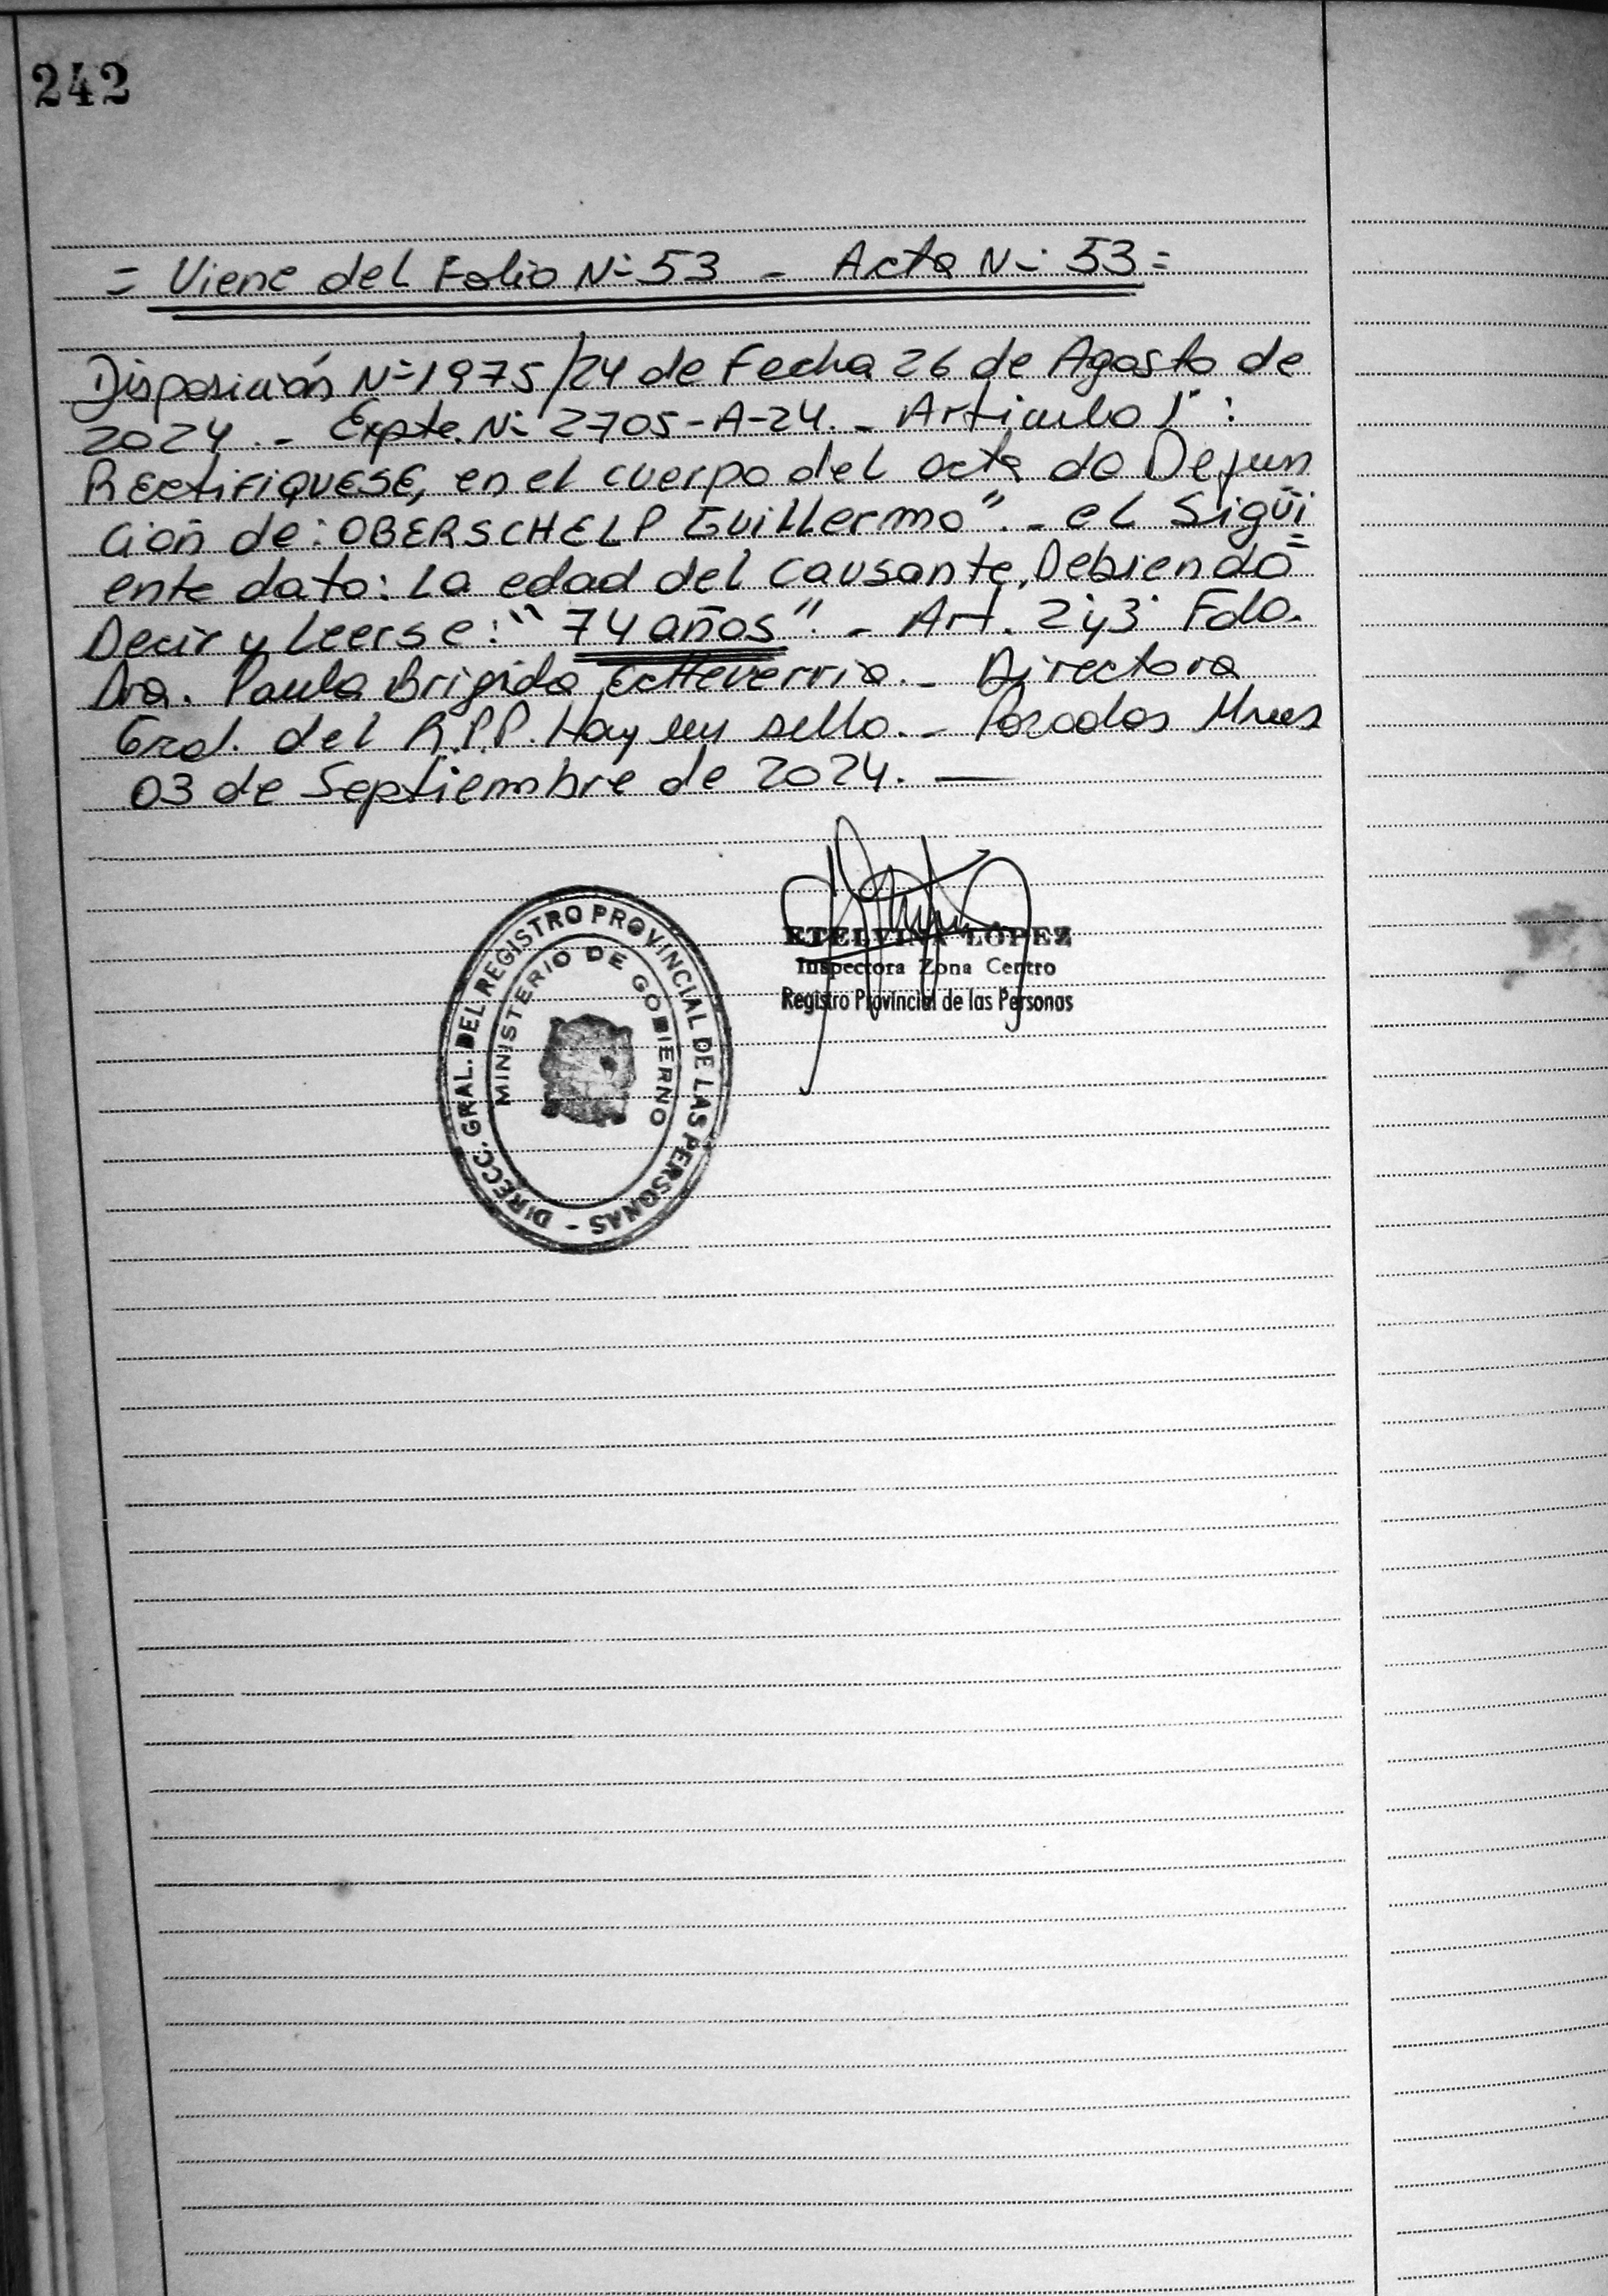 242
= Viene del Folio N= 53 - Acta N= 53 =
Disposición N=1975/24 de Fecha 26 de Agosto de
2024.- Expte. N= 2705-A-24.- Articulo 1°:
REctiFiQUESE, en el cuerpo del acta de Defun
ción de: OBERSCHELP Guillermo".- el Sigüi
ente dato: La edad del causante, Debiendo=
Decir y Leerse: "74 años".- Art. 2°y3° Fdo.
Dra. Paula Brigida Echeverria.- Directora
Gral. del R.P.P. Hay un sello.- Posadas Mnes
03 de Septiembre de 2024. —
ETELVINA LÓPEZ
Inspectora Zona Centro
Registro Provincial de las Personas
DIRECC. GRAL. DEL REGISTRO PROVINCIAL DE LAS PERSONAS -
MINISTERIO DE GOBIERNO